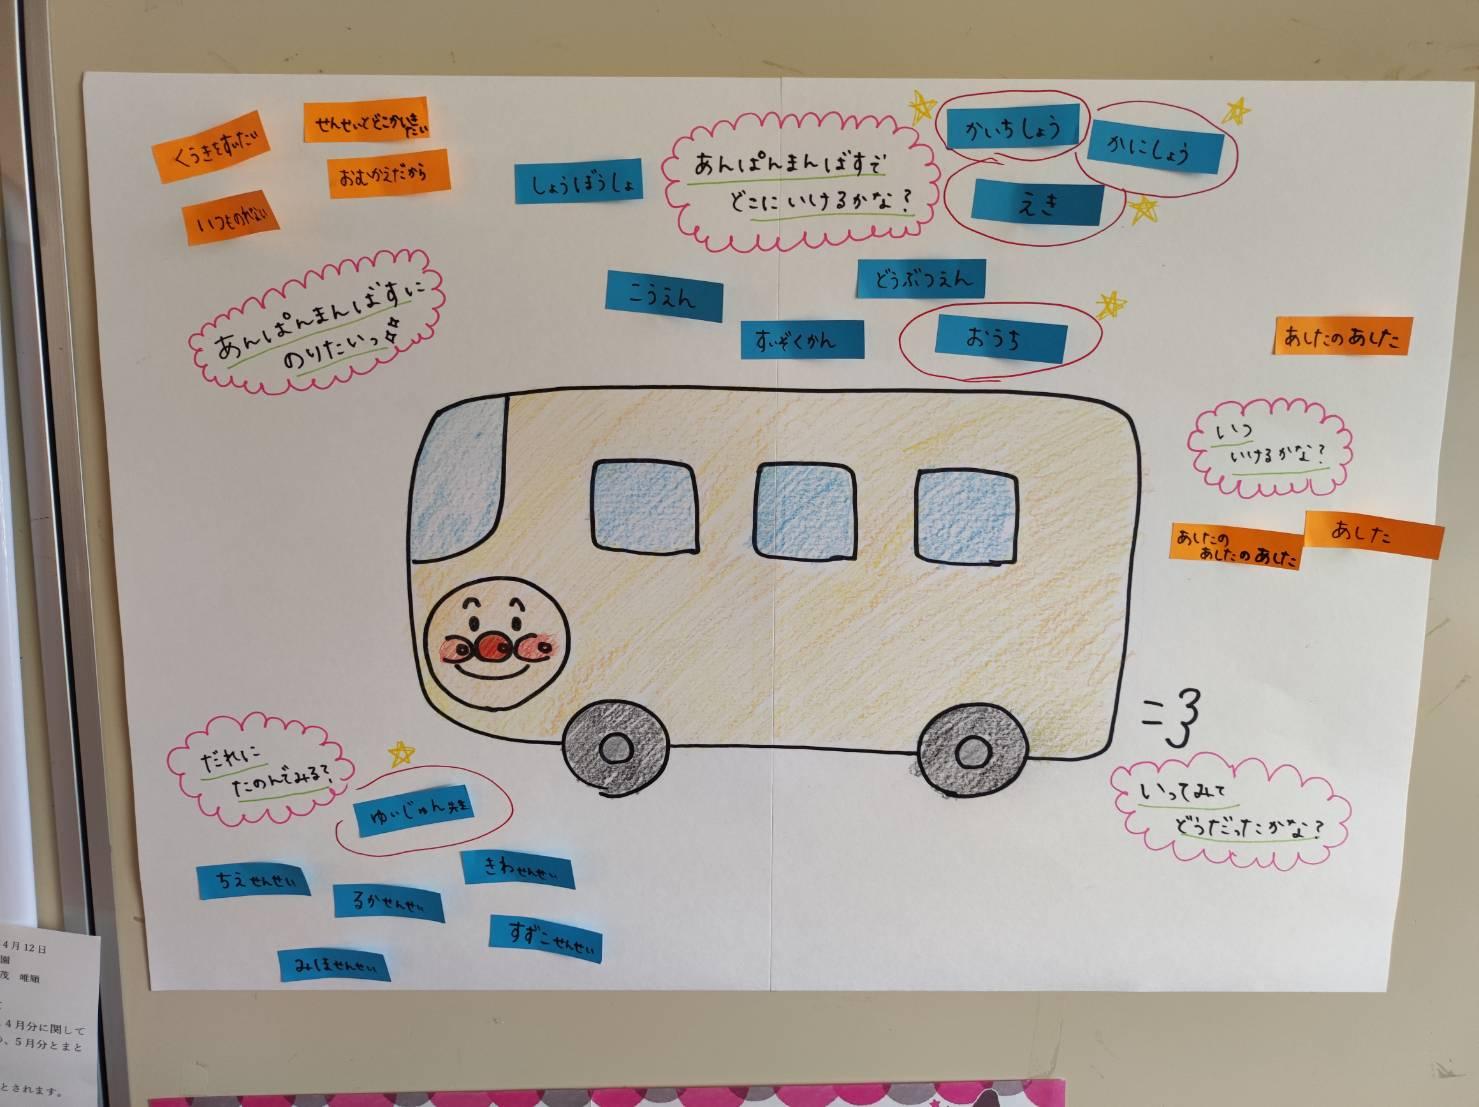 くうきをすいたい
せんせいとどこかいき
たい
おむかえだから
いつものれない
あんぱんまんばすに
のりたいっ
しょうぼうしょ
あんぱんまんばすで
どこにいけるかな？
かいちしょう
かにしょう
えき
こうえん
どうぶつえん
すいぞくかん
おうち
あしたのあした
いつ
いけるかな？
あしたの
あしたのあした
あした
だれに
たのんでみる？
ゆいじゅん先生
ちえせんせい
るかせんせい
きわせんせい
すずこせんせい
みほせんせい
いってみて
どうだったかな？
4月12日
園
茂 唯順
4月分に関して
、5月分とまと
とされます。